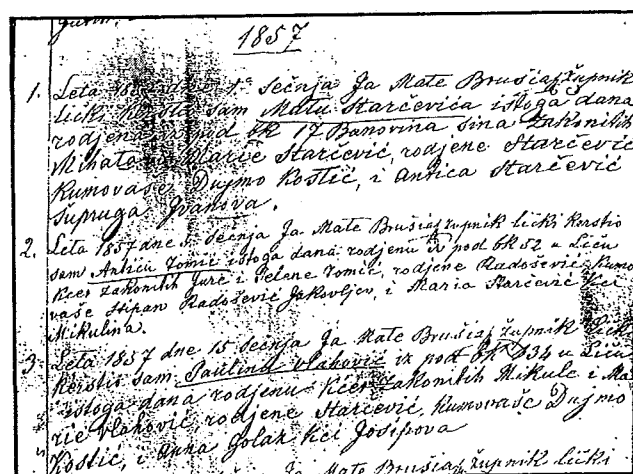 1857
1. Leta 1857 dne 1º Sečnja Ja Mate Brušiaj župnik
lički kerstio sam Matu Starčevića istoga dana
rodjena iz pod bk 17 Banovina sina zakonitih
Mihata i Marie Starčević, rodjene Starčević
Kumovaše Dujmo Kostić, i Antica Starčević
supruga Ivanova.
2. Leta 1857 dne Sečnja Ja Mate Brušiaj župnik lički kerstio
sam Anticu Tomić istoga dana rodjenu iz pod bk 52 u Liču
Kćer zakonitih Jure i Jelene Tomić, rodjene Radošević, Kumo
vaše Stipan Radošević Jakovljev, i Maria Starčević Kći
Mikulina.
3. Leta 1857 dne 15 Sečnja Ja Mate Brušiaj župnik lički
Kerstio sam Paulinu Vlahović iz pod bk D34 u Liču
istoga dana rodjenu Kćer zakonitih Mikule i Ma
rie Vlahović, rodjene Starčević, Kumovaše Dujmo
Kostić, i Anna Golak kći Josipova
Ja Mate Brušiaj župnik lički